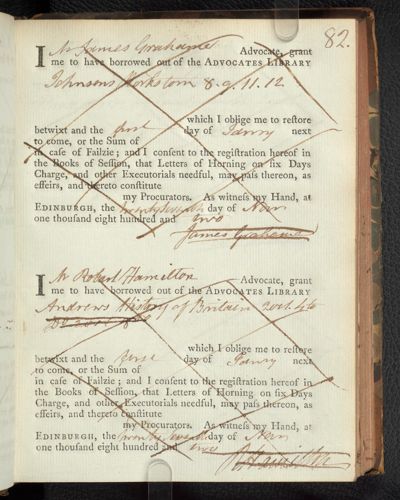 82.
I Mr James Grahame Advocate, grant
me to have borrowed out of the ADVOCATES LIBRARY
Johnsons Works tom 8. 9. 11. 12
which I oblige me to reſtore
betwixt and the first day of Janry next
to come, or the Sum of
in caſe of Failzie; and I conſent to the regiſtration hereof in
the Books of Seſſion, that Letters of Horning on ſix Days
Charge, and other Executorials needful, may paſs thereon, as
effeirs, and thereto conſtitute
my Procurators. As witneſs my Hand, at
EDINBURGH, the day of Novr
one thousand eight hundred and two
James Grahame
I Mr Robert Hamilton Advocate, grant
me to have borrowed out of the ADVOCATES LIBRARY
Andrews History of Britain 2 vol. 4to
which I oblige me to reſtore
betwixt and the first day of Janry next
to come, or the Sum of
in caſe of Failzie; and I conſent to the regiſtration hereof in
the Books of Seſſion, that Letters of Horning on ſix Days
Charge, and other Executorials needful, may paſs thereon, as
effeirs, and thereto conſtitute
my Procurators. As witneſs my Hand, at
EDINBURGH, the twenty day of Novr
one thouſand eight hundred and two
Hamilton